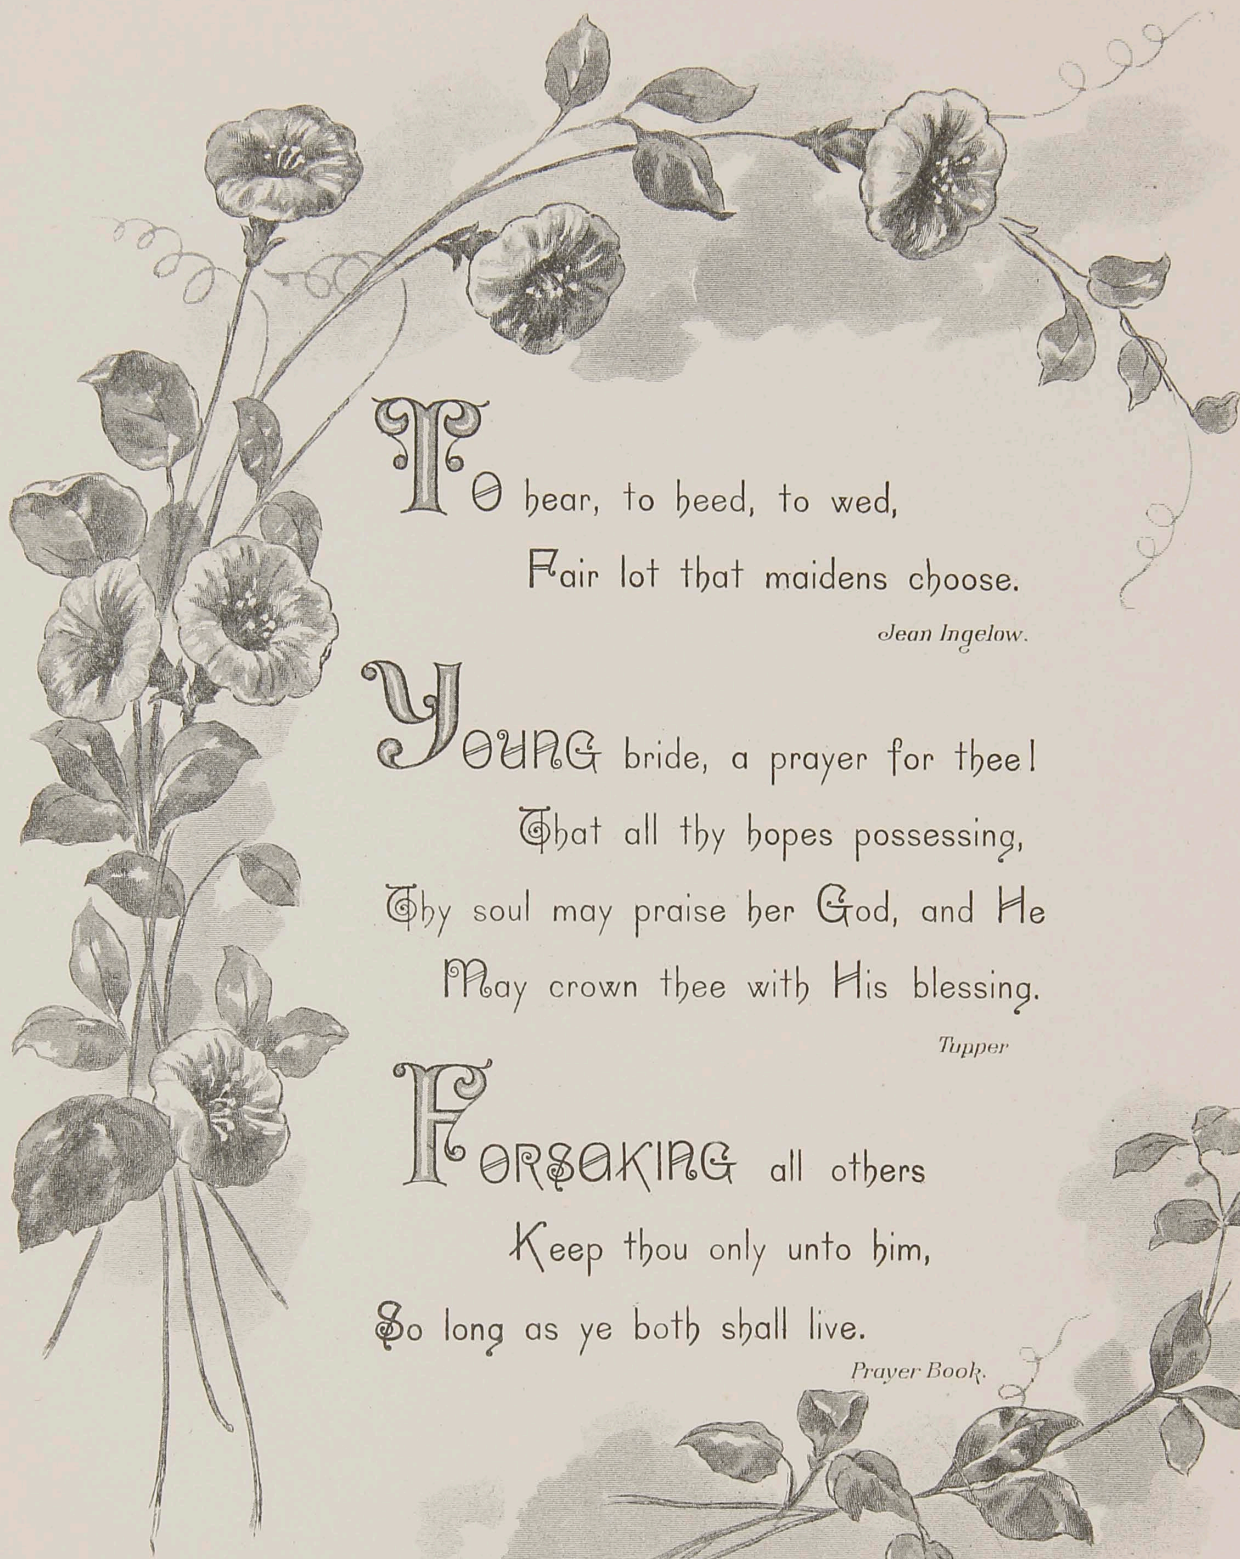 To hear, to heed, to wed,
Fair lot that maidens choose.
Jean Ingelow.
Young bride, a prayer for thee!
That all thy hopes possessing,
Thy soul may praise her God, and He
May crown thee with His blessing.
Tupper
Forsaking all others
Keep thou only unto him,
So long as ye both shall live.
Prayer Book.